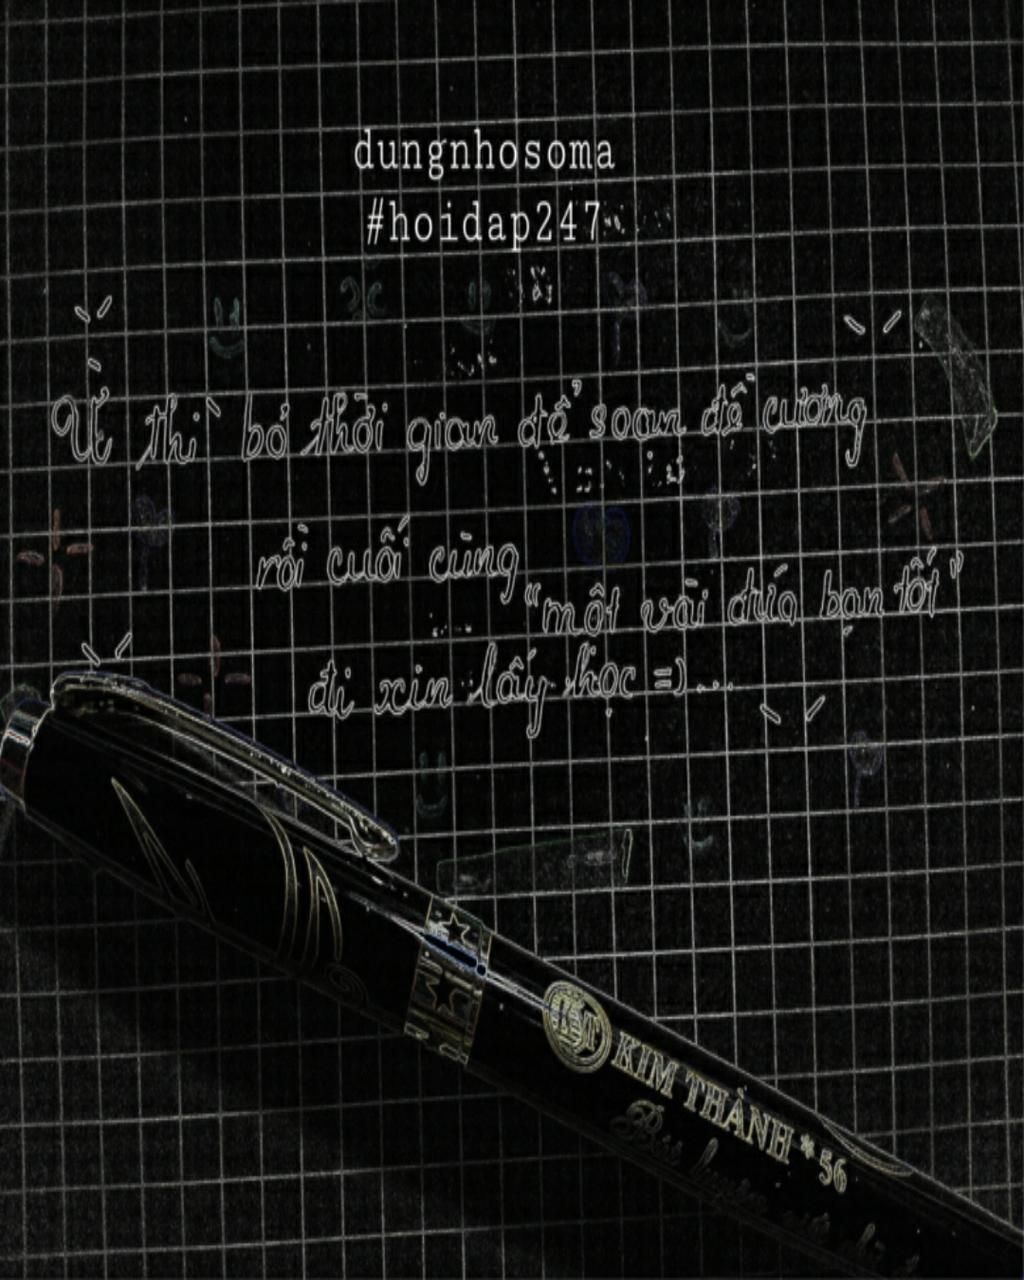 dungnhosoma
#hoidap247
Ừ thì bỏ thời gian để soạn đề cương
rồi cuối cùng
"một vài đứa bạn tốt"
đi xin lấy học =)...
KIM THÀNH * 56